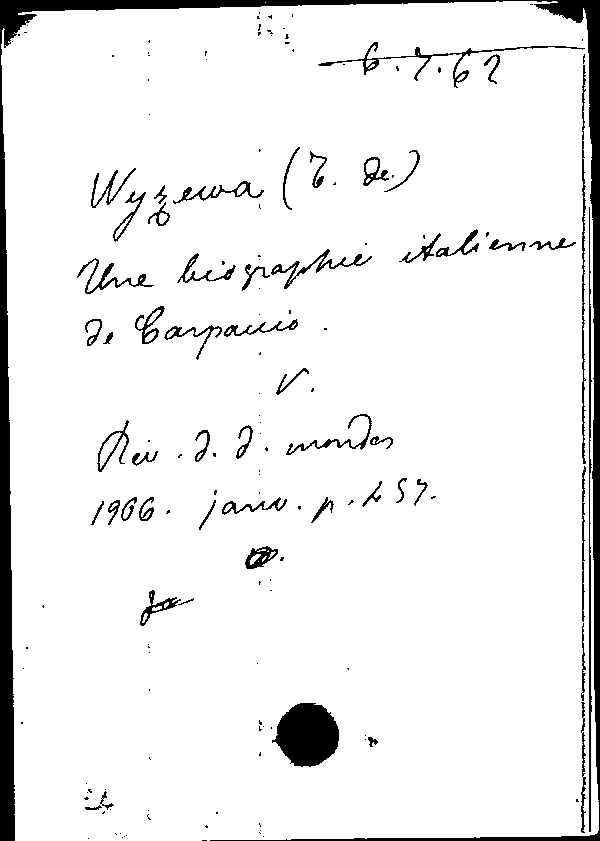 6.7.62
Wyzewa (T. de)
Une biographie italienne
de Carpaccio.
V.
Rev. d. d. mondes
1906. janv. p. 457.